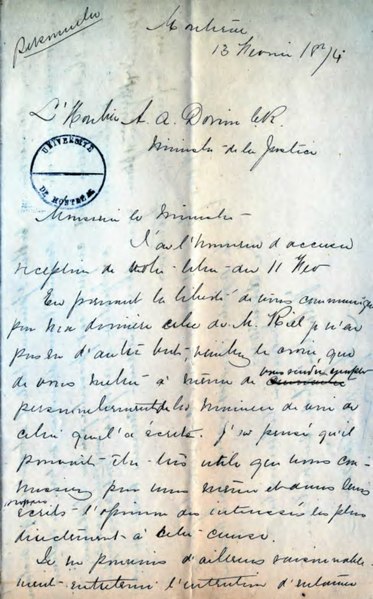 personnelle
Montréal
13 Février 1874
L'Honble A. A. Dorion C.R.
Ministre de la Justice
UNIVERSITÉ
DE MONTRÉAL
Monsieur le Ministre
J'ai l'honneur d'accuser
réception de votre lettre du 11 Fev
En prenant la liberté de vous communiquer
par ma dernière celle de M. Riel je n'ai
pas eu d'autre but, veuillez le croire, que
de vous mettre à même de vous rendre compte
personnellement de la manière de voir de
celui qui l'a écrite. J'ai pensé qu'il
pourrait être très utile que vous con-
par vous même et dans leurs
écrits l'opinion des intéressés les plus
directement à cette cause.
Je ne pouvais d'ailleurs raisonnable-
ment entretenir l'intention d'entamer